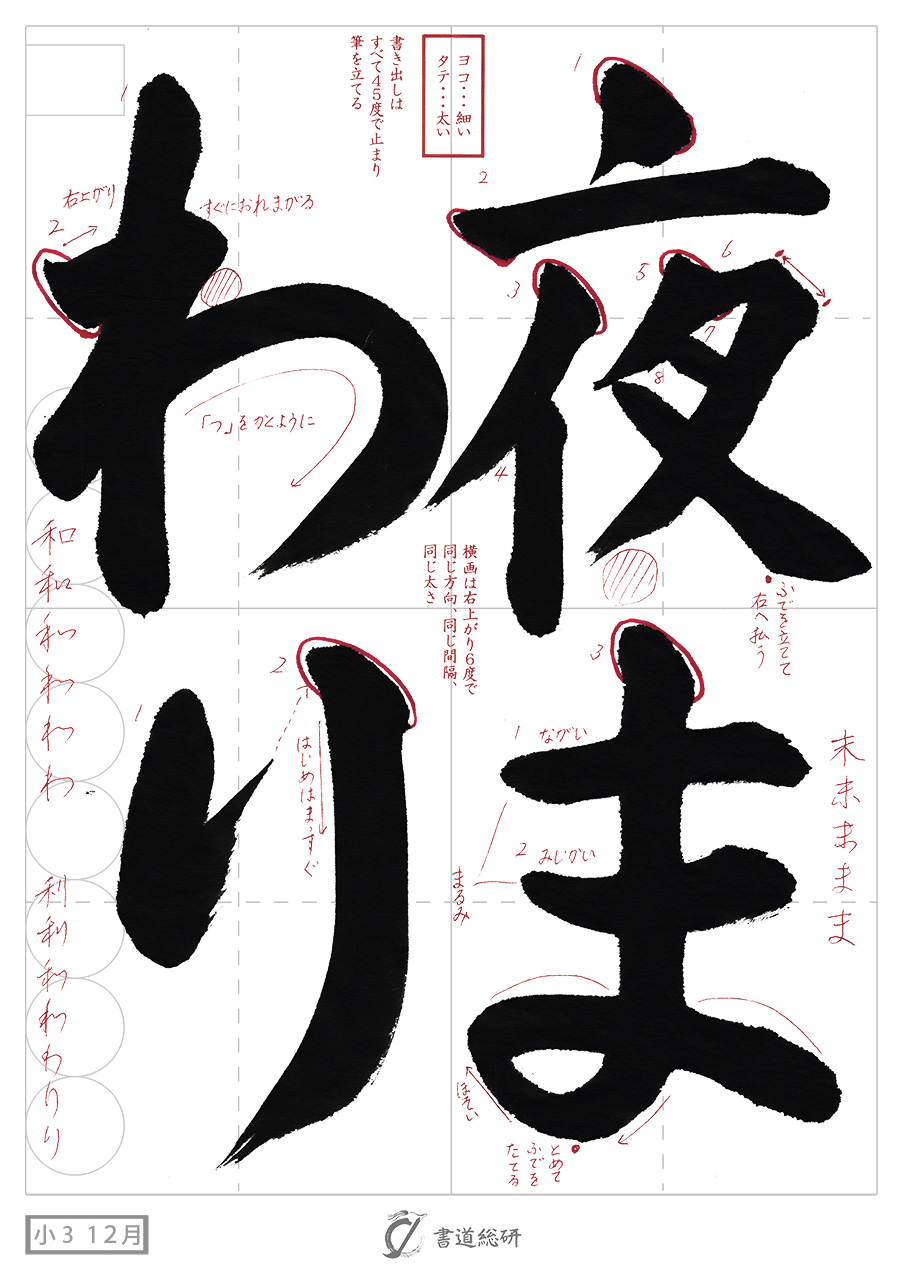 夜まわり
ヨコ・・・細い
タテ・・・太い
書き出しは
すべて45度で止まり
筆を立てる
1
2
3
4
5
6
7
8
ふでを立てて
右へ払う
横画は右上がり6度で
同じ方向、同じ間隔、
同じ太さ
3
1 ながい
2 みじかい
まるみ
ほそい
とめて
ふでを
たてる
末末ままま
1
右上がり
2
すぐにおれまがる
「つ」をかくように
1
2
はじめはまっすぐ
小3 12月
書道総研